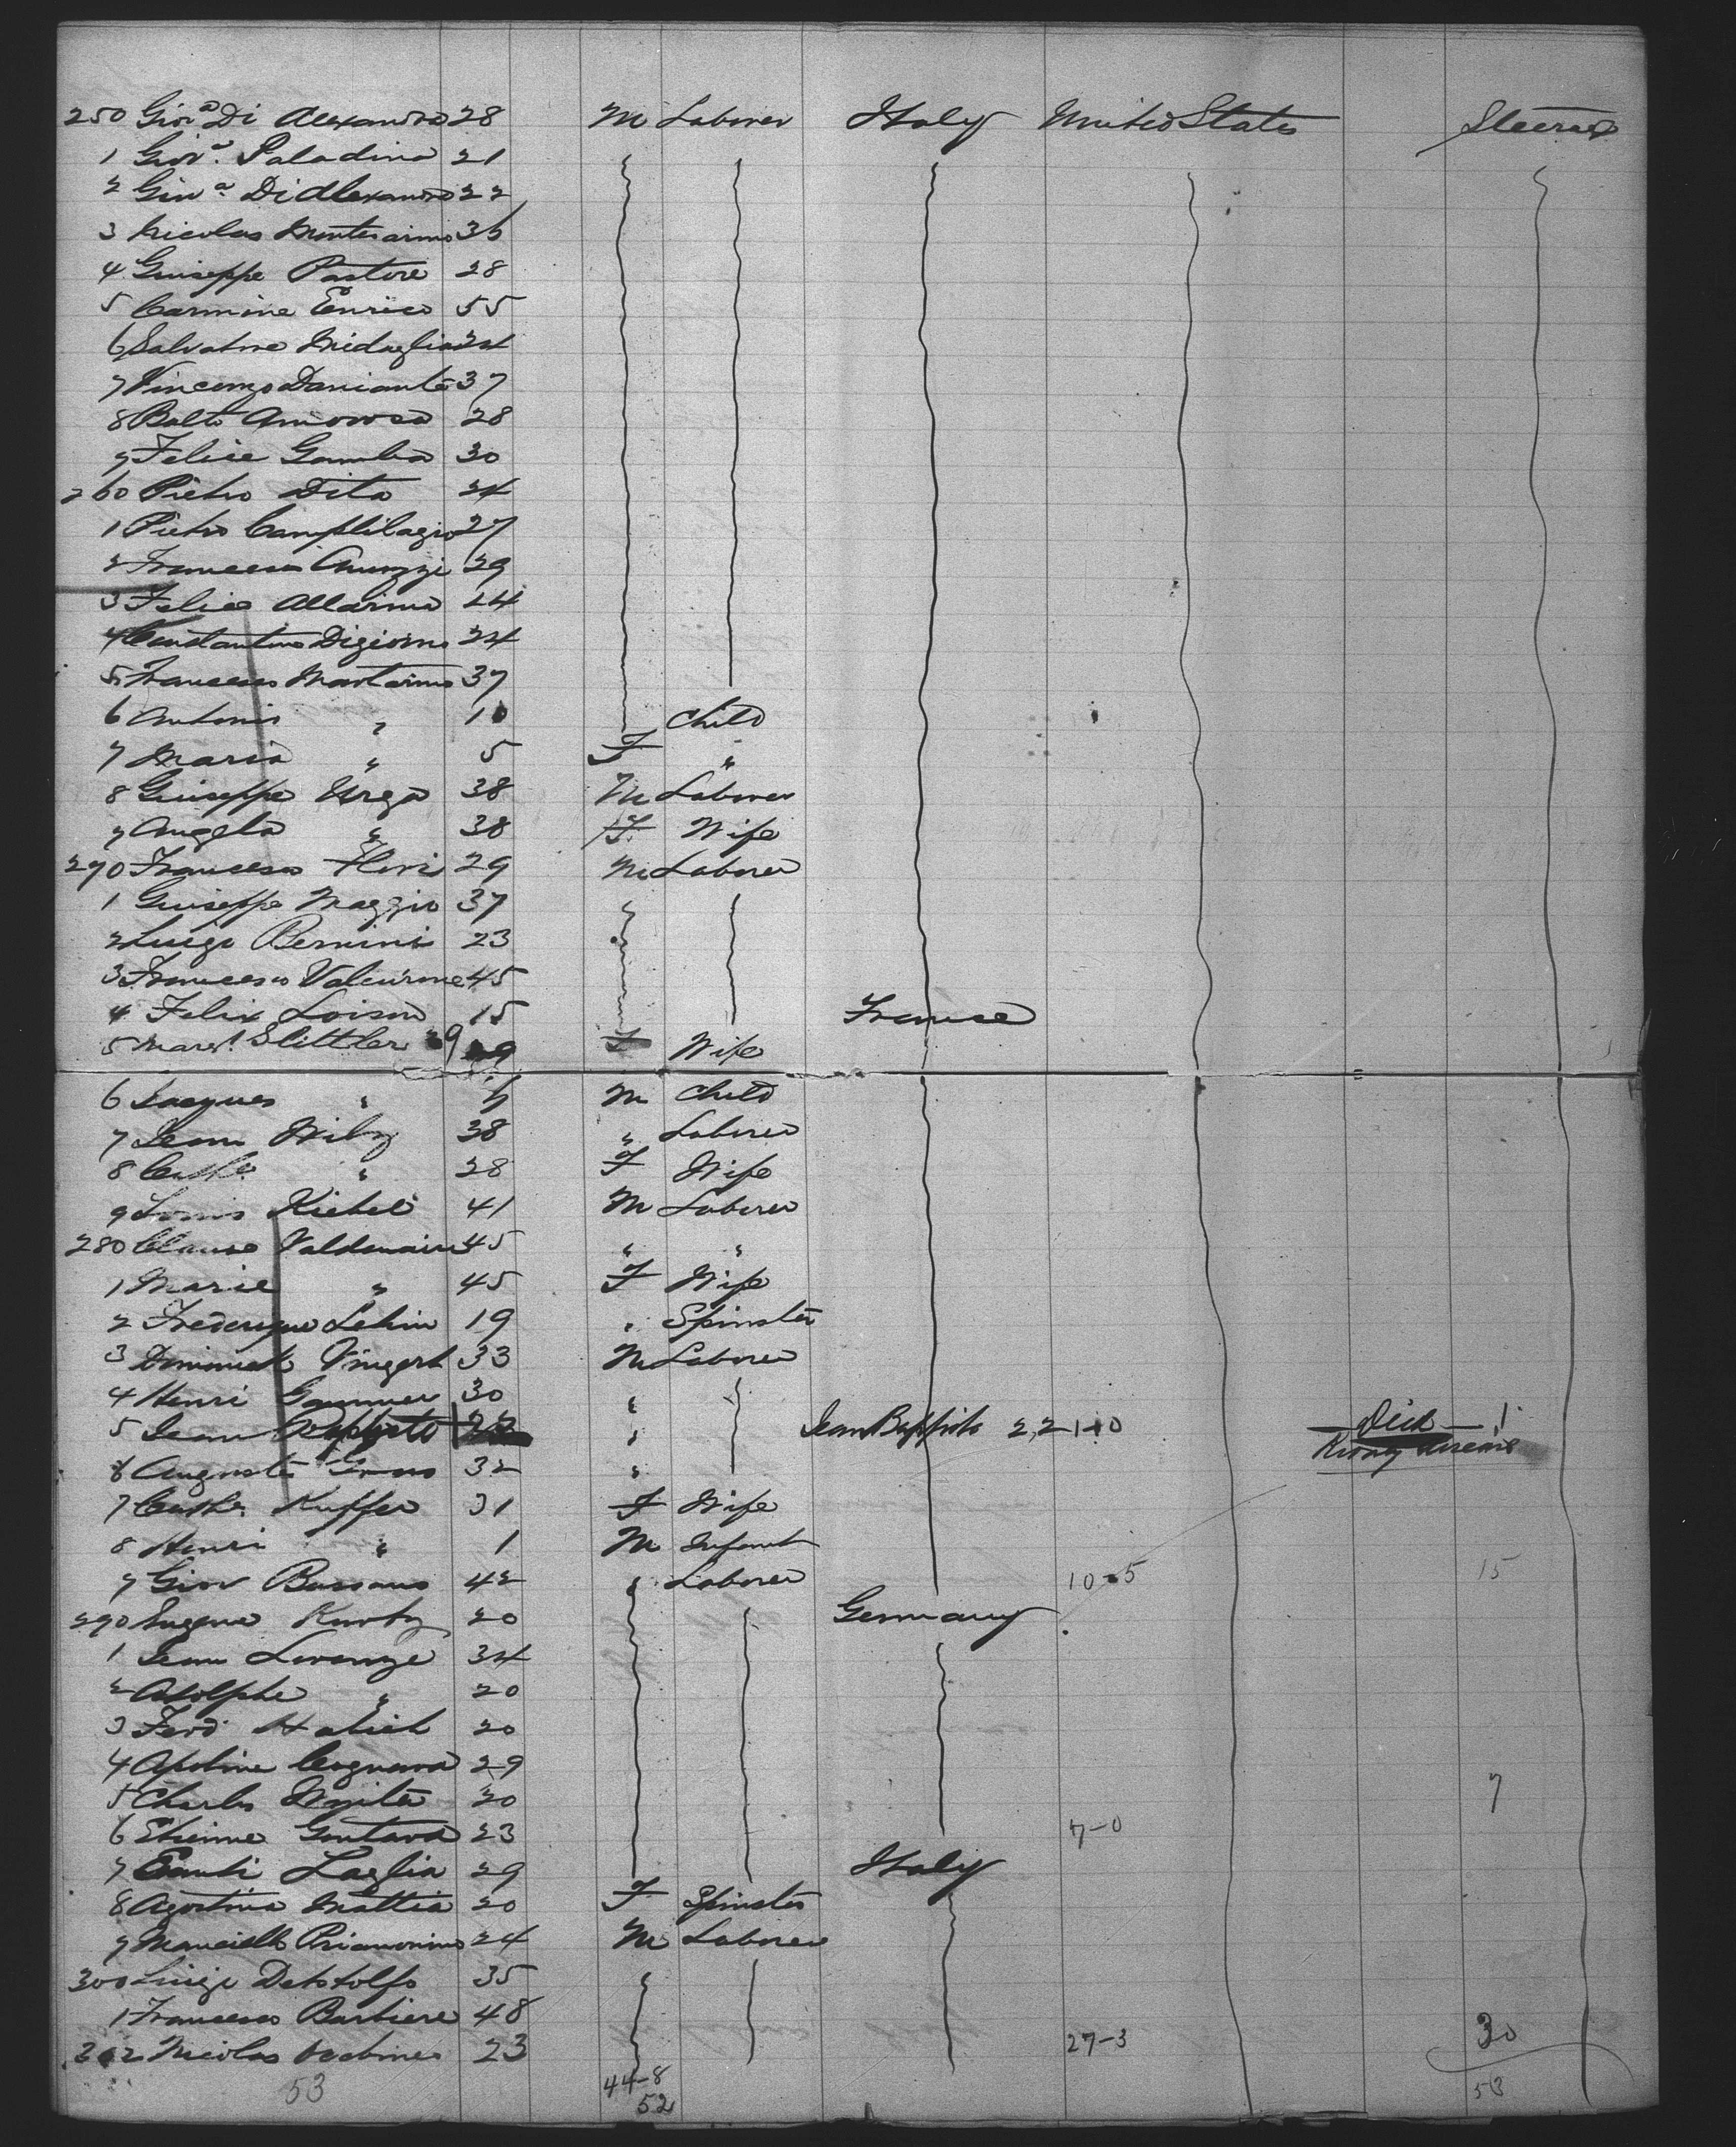 250 Giov.a Di Alexandro 28 M Laborer Italy United States Steerage
1 Giov.a Paladino 21
2 Giov.a Di Alexandro 22
3 Nicolas 36
4 Giuseppe Pastore 28
5 Carmine Enrico 55
6 Salvatore Medaglia 24
7 Vincenzo Daniante 37
8 Balto Amorosa 28
9 Felice Gamba 30
260 Pietro Dita 24
1 Pietro 27
2 Francesco 29
3 Felice 24
4 Constantino Digiorno 24
5 Francesco Martarino 37
6 Antonio " 10 Child
7 Maria " 5 F "
8 Giuseppe Urga 38 M Laborer
9 Angela " 38 F Wife
270 Francesco Flori 29 M Laborer
1 Giuseppe Maggio 37
2 Luigi Bernini 23
3 Francesco 45
4 Felix Loison 15 France
5 Marg.t Slittler 29 F Wife
6 Jacques " M Child
7 Jean Wilz 38 " Laborer
8 Cathe " 28 F Wife
9 Louis Kichel 41 M Laborer
280 Clause 45 " "
1 Marie " 45 F Wife
2 Frederique Lehin 19 " Spinster
3 Vingert 33 M Laborer
4 Henri Gammer 30 "
5 Jean " Jean Baptiste 22 1-0 Died 1
Kidney disease
6 Auguste Gross 32 "
7 Cathe Kuffer 31 F Wife
8 Henri " 1 M Infant
9 Giov Bassano 42 " Laborer 10-5 15
290 Eugene Kurtz 20 Germany
1 Jean Lorenze 34
2 Adolphe " 20
3 Ferd. Habich 20
4 Apoline 29
5 Charles 20 7
6 Etienne Gontard 23 7-0
7 Laglia 29 Italy
8 Agostina Mattia 20 F Spinster
9 24 M Laborer
300 Luigi 35
1 Francesco Barbiere 48
302 Nicolas 23 27-3 30
53 44-8 53
52